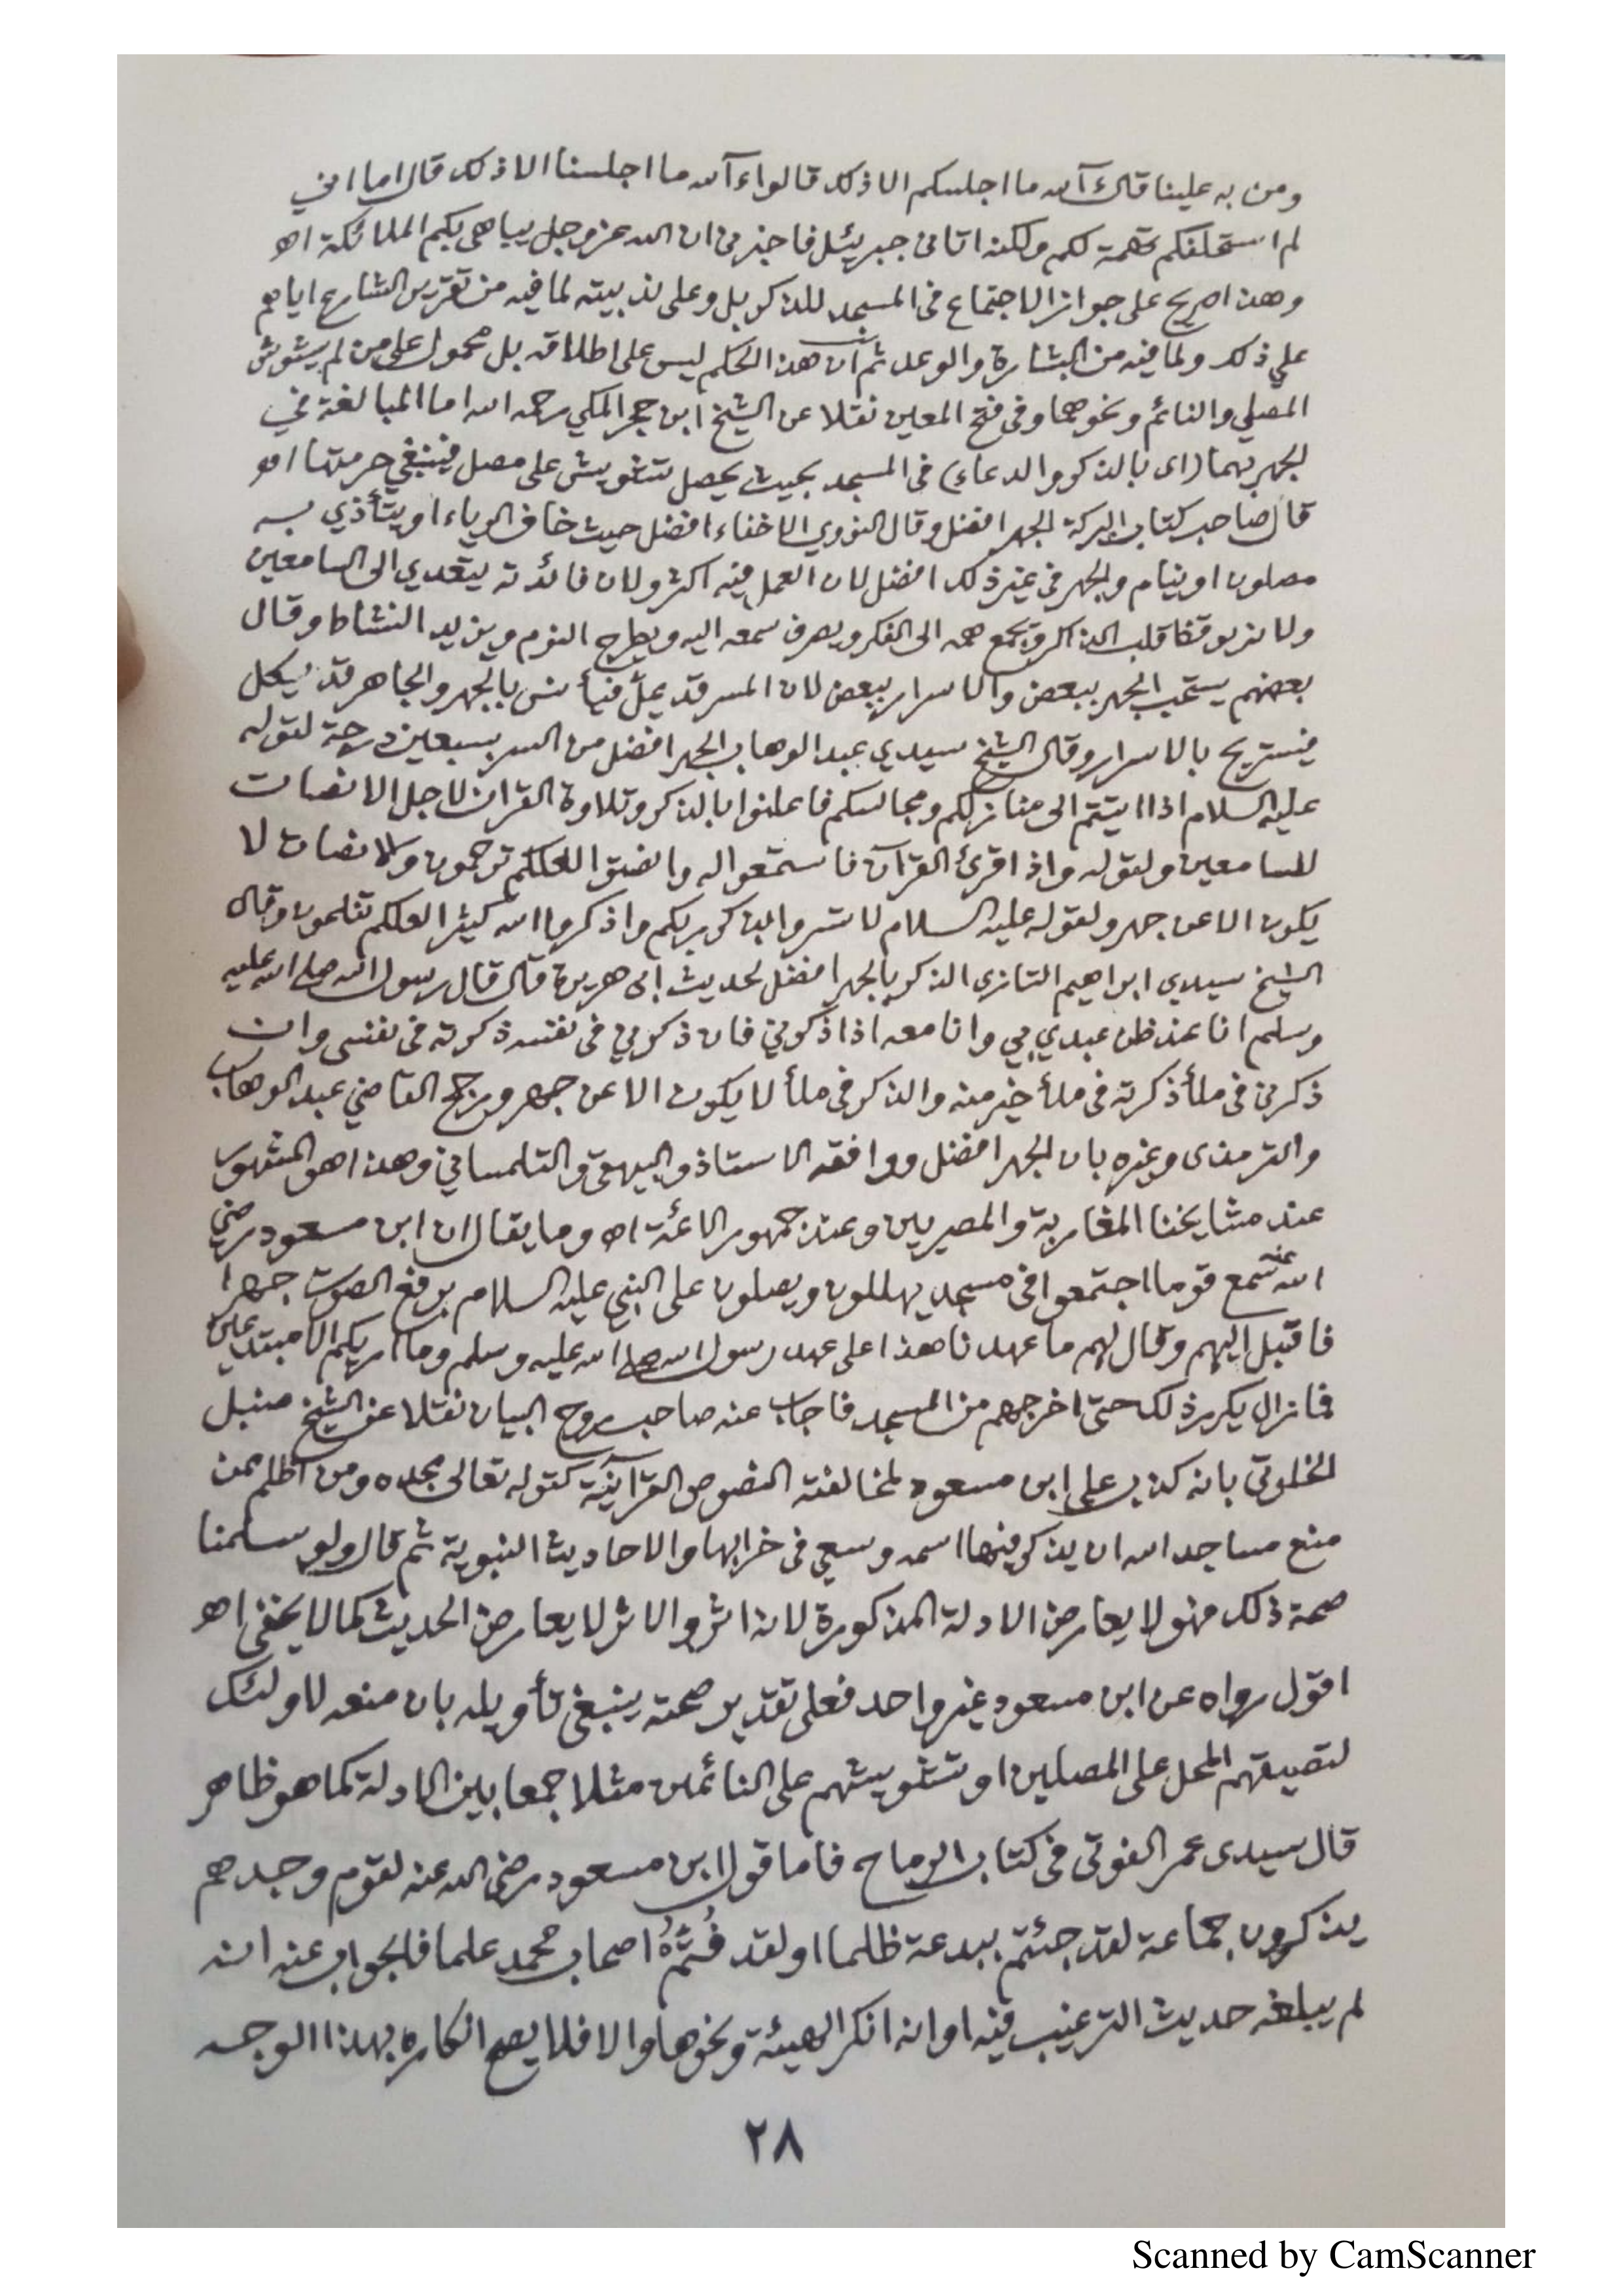 ومن به علينا قال آلله ما اجلسكم الا ذلك قالوا ءآلله ما اجلسنا الا ذلك قال اما اني
لم استحلفكم تهمة لكم ولكنه اتانى جبريئل فاخبرنى ان الله عزوجل يباهى بكم الملائكة اه
وهذا صريح على جواز الاجتماع فى المسجد للذكر بل وعلى ندبيته لما فيه من تقرير الشارع اياهم
على ذلك ولما فيه من البشارة والوعد ثم ان هذا الحكم ليس على اطلاقه بل محمول على من لم يشوش
المصلي والنائم ونحوهما وفى فتح المعين نقلا عن الشيخ ابن حجر المكي رحمه الله اما المبالغة في
الجهر بهما (اى بالذكر والدعاء) فى المسجد بحيث يحصل تشويش على مصل فينبغي حرمتها اه
قال صاحب كتاب البركة الجهر افضل وقال النووي الاخفاء افضل حيث خاف الرياء او يتأذي به
مصلون او نيام والجهر في غير ذلك افضل لان العمل فيه اكثر ولان فائدته يتعدي الى السامعين
ولانه يوقظ قلب الذاكر ويجمع همه الى الفكر ويصرف سمعه اليه ويطرح النوم ويزيد النشاط وقال
بعضهم يستحب الجهر ببعض والاسرار ببعض لان المسر قد يمل فيأنس بالجهر والجاهر قد يكل
فيستريح بالاسرار وقال الشيخ سيدي عبد الوهاب الجهر افضل من السر بسبعين درجة لقوله
عليه السلام اذا اتيتم الى منازلكم ومجالسكم فاعلنوا بالذكر وتلاوة القرآن لاجل الانصات
للسامعين ولقوله واذا قرئ القرآن فاستمعوا له وانصتوا لعلكم ترحمون والانصات لا
يكون الا عن جهر ولقوله عليه السلام لا تسروا بذكر ربكم واذكروا الله كثيرا لعلكم تفلحون وقال
الشيخ سيدي ابراهيم التازى الذكر بالجهر افضل لحديث ابى هريرة قال قال رسول الله صلى الله عليه
وسلم انا عند ظن عبدي بي وانا معه اذا ذكرني فان ذكرني فى نفسه ذكرته فى نفسى وان
ذكرنى فى ملأ ذكرته فى ملأ خير منه والذكر فى ملأ لا يكون الا عن جهر ورجح القاضي عبد الوهاب
والترمذى وغيره بان الجهر افضل ووافقه الاستاذ والبيهقى والتلمساني وهذا هو المشهور
عند مشايخنا المغاربة والمصريين وعند جمهور الائمة اه وما يقال ان ابن مسعود رضي
الله عنه سمع قوما اجتمعوا فى مسجد يهللون ويصلون على النبي عليه السلام برفع الصوت جهرا
فاقبل اليهم وقال لهم ما عهدنا هذا على عهد رسول الله صلى الله عليه وسلم وما اريكم الا مبتدعين
فما زال يكرر ذلك حتى اخرجهم من المسجد فاجاب عنه صاحب روح البيان نقلا عن الشيخ سنبل
الخلوتي بانه كذب على ابن مسعود لمخالفته النصوص القرآنية كقوله تعالى مجده ومن اظلم ممن
منع مساجد الله ان يذكر فيها اسمه وسعي فى خرابها والاحاديث النبوية ثم قال ولو سلمنا
صحة ذلك فهو لا يعارض الادلة المذكورة لانه اثر والاثر لا يعارض الحديث كما لا يخفى اه
اقول رواه عن ابن مسعود غير واحد فعلى تقدير صحته ينبغي تأويله بان منعه لاولئك
لتضييقهم المحل على المصلين او تشويشهم على النائمين مثلا جمعا بين الادلة كما هو ظاهر
قال سيدى عمر الفوتى فى كتاب الرماح فاما قول ابن مسعود رضى الله عنه لقوم وجدهم
يذكرون جماعة لقد جئتم ببدعة ظلما او لقد فُتُّمْ اصحاب محمد علما فالجواب عنه انه
لم يبلغه حديث الترغيب فيه او انه انكر الهيئة ونحوها والا فلا يصح انكاره بهذا الوجه
٢٨
Scanned by CamScanner